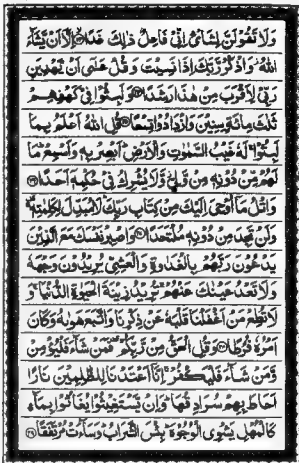 وَلَا تَقُولَنَّ لِشَايْءٍ إِنِّي فَاعِلٌ ذَٰلِكَ غَدًا ﴿٢٣﴾ إِلَّا أَن يَشَاءَ
اللَّهُ وَاذْكُر رَّبَّكَ إِذَا نَسِيتَ وَقُلْ عَسَىٰ أَن يَهْدِيَنِ
رَبِّي لِأَقْرَبَ مِنْ هَٰذَا رَشَدًا ﴿٢٤﴾ وَلَبِثُوا فِي كَهْفِهِمْ
ثَلَٰثَ مِائَةٍ سِنِينَ وَازْدَادُوا تِسْعًا ﴿٢٥﴾ قُلِ اللَّهُ أَعْلَمُ بِمَا
لَبِثُوا لَهُ غَيْبُ السَّمَٰوَٰتِ وَالْأَرْضِ أَبْصِرْ بِهِ وَأَسْمِعْ مَا
لَهُم مِّن دُونِهِ مِن وَلِيٍّ وَلَا يُشْرِكُ فِي حُكْمِهِ أَحَدًا ﴿٢٦﴾
وَاتْلُ مَا أُوحِيَ إِلَيْكَ مِن كِتَابِ رَبِّكَ لَا مُبَدِّلَ لِكَلِمَٰتِهِ
وَلَن تَجِدَ مِن دُونِهِ مُلْتَحَدًا ﴿٢٧﴾ وَاصْبِرْ نَفْسَكَ مَعَ الَّذِينَ
يَدْعُونَ رَبَّهُم بِالْغَدَوٰةِ وَالْعَشِيِّ يُرِيدُونَ وَجْهَهُ
وَلَا تَعْدُ عَيْنَاكَ عَنْهُمْ تُرِيدُ زِينَةَ الْحَيَوٰةِ الدُّنْيَا وَ
لَا تُطِعْ مَنْ أَغْفَلْنَا قَلْبَهُ عَن ذِكْرِنَا وَاتَّبَعَ هَوَىٰهُ وَكَانَ
أَمْرُهُ فُرُطًا ﴿٢٨﴾ وَقُلِ الْحَقُّ مِن رَّبِّكُمْ فَمَن شَاءَ فَلْيُؤْمِن
وَّمَن شَاءَ فَلْيَكْفُرْ إِنَّا أَعْتَدْنَا لِلظَّٰلِمِينَ نَارًا
أَحَاطَ بِهِمْ سُرَادِقُهَا وَإِن يَسْتَغِيثُوا يُغَاثُوا بِمَاءٍ
كَالْمُهْلِ يَشْوِي الْوُجُوهَ بِئْسَ الشَّرَابُ وَسَاءَتْ مُرْتَفَقًا ﴿٢٩﴾